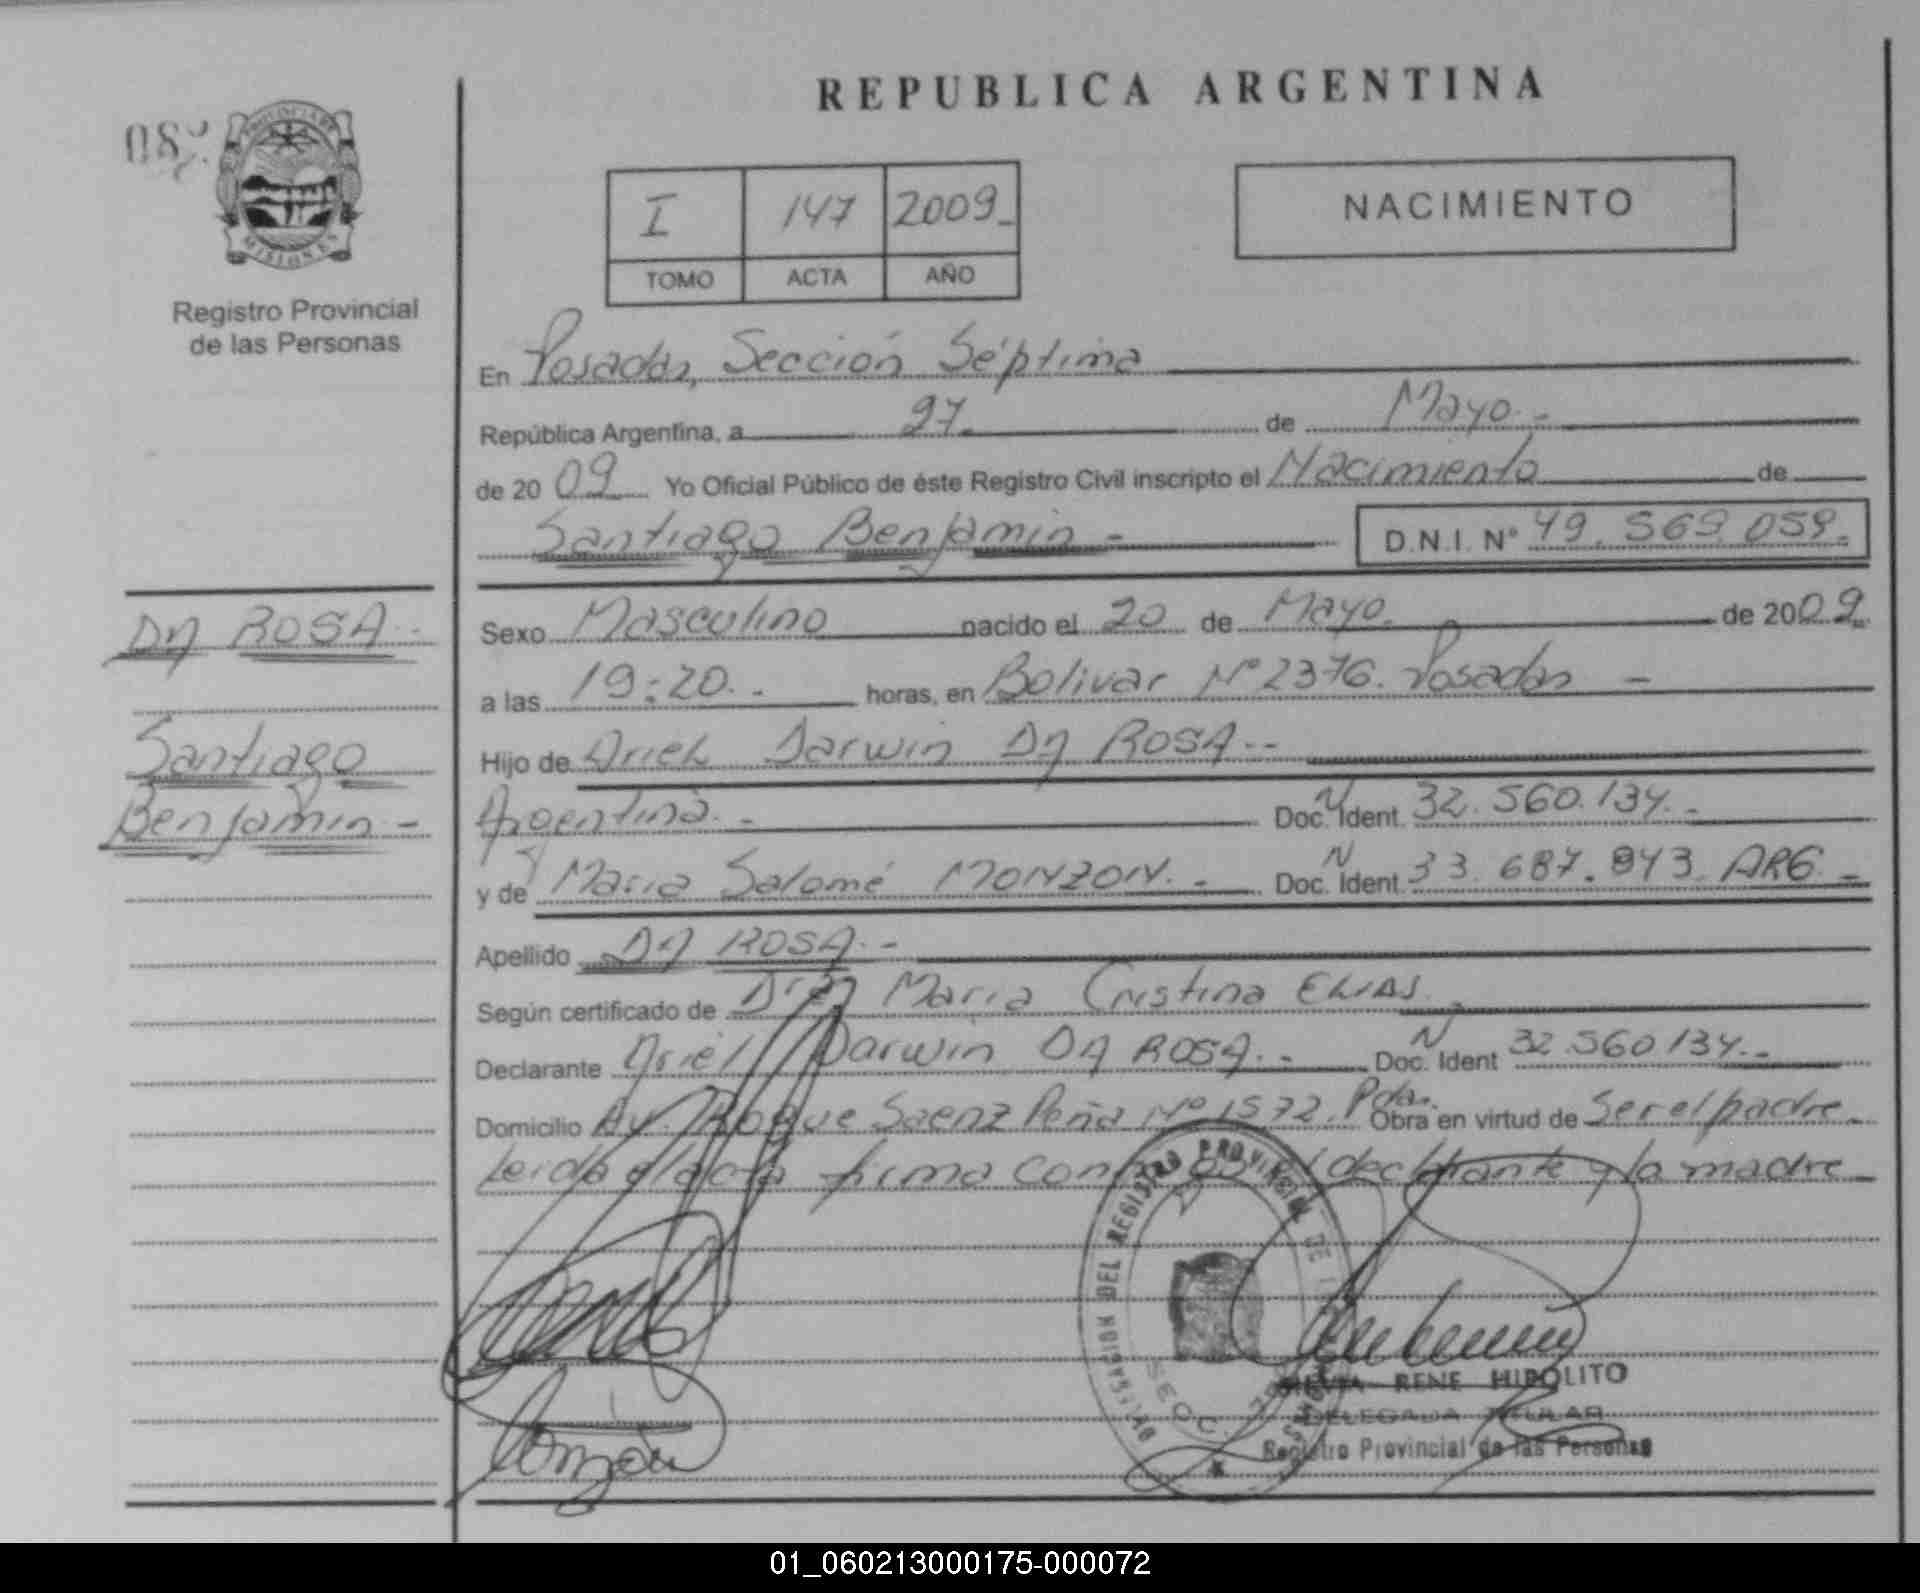 REPUBLICA ARGENTINA
08
PROVINCIA DE
MISIONES
Registro Provincial
de las Personas
I 147 2009
TOMO ACTA AÑO
NACIMIENTO
En Posadas, Sección Séptima
República Argentina, a 27 de Mayo.-
de 2009 Yo Oficial Público de éste Registro Civil inscripto el Nacimiento de
Santiago Benjamin - D.N.I. Nº 49.569.059.
DA ROSA.-
Santiago
Benjamin -
Sexo Masculino nacido el 20 de Mayo. de 2009
a las 19:20.- horas, en Bolivar Nº 2376. Posadas -
Hijo de Ariel Darwin DA ROSA.--
Argentina.- Doc. Ident. N 32.560.134.-
y de Maria Salomé MONZON.- Doc. Ident. N 33.687.943. ARG.-
Apellido DA ROSA.-
Según certificado de Dra Maria Cristina ELIAS.-
Declarante Ariel Darwin DA ROSA.- Doc. Ident N 32.560.134.-
Domicilio Av. Roque Saenz Peña Nº 1572. Pdas. Obra en virtud de Ser el padre
Leida el acta firma declarante y la madre
DELEGACION DEL REGISTRO PROVINCIAL DE
SECC.
Monzón
RENE HIPOLITO
DELEGADA TITULAR
Registro Provincial de las Personas
01_060213000175-000072